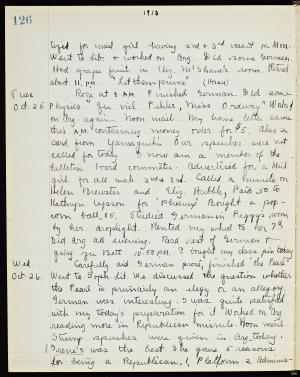 126
1910
tized for mail girl having 2nd & 3rd vacant on Mon.
Went to Lib. & worked on Arg. Did some German.
Had grape fruit in Eliz. Mc Shane's room. Retired
about 11 P.M.
Tues. Rose at 6 A.M. Finished German. Did some
Oct. 25. Physics. "Zu viel Fehler, Miss Ordway" Worked
on Arg. again. Noon mail. My home letter came
this A.M. containing money order for $5. Also a
card from Yamaguchi. Our speeches were not
called for today. I now am a member of the
bulletin board committee. Advertised for a Mail
girl for all week 2nd & 3rd. Called a minute on
Helen Brewster and Eliz. Hubble. Paid .50 to
Kathryn Upson for "Phoenix" Bought a pop-
corn ball, .05. Studied German in Peggy's room
by her droplight. Rented my what to her 7th
Did Arg all evening. Read rest of German &
going zu Bett 10.30 P.M. I bought my class pin today.
Wed. Carefully did German prose, finished the Pearl.
Oct 26. Went to Soph. Lit. We discussed the question whether
the Pearl is primarily an elegy or an allegory.
German was interesting. I was quite satisfied
with my today's preparation for it. Worked on Arg
reading more in Republican misrule. Noon mail
Stump speeches were given in Arg. today.
Irene's was the best. She gave 5 reasons
for being a Republican. 1, Platform 2 Adminis-